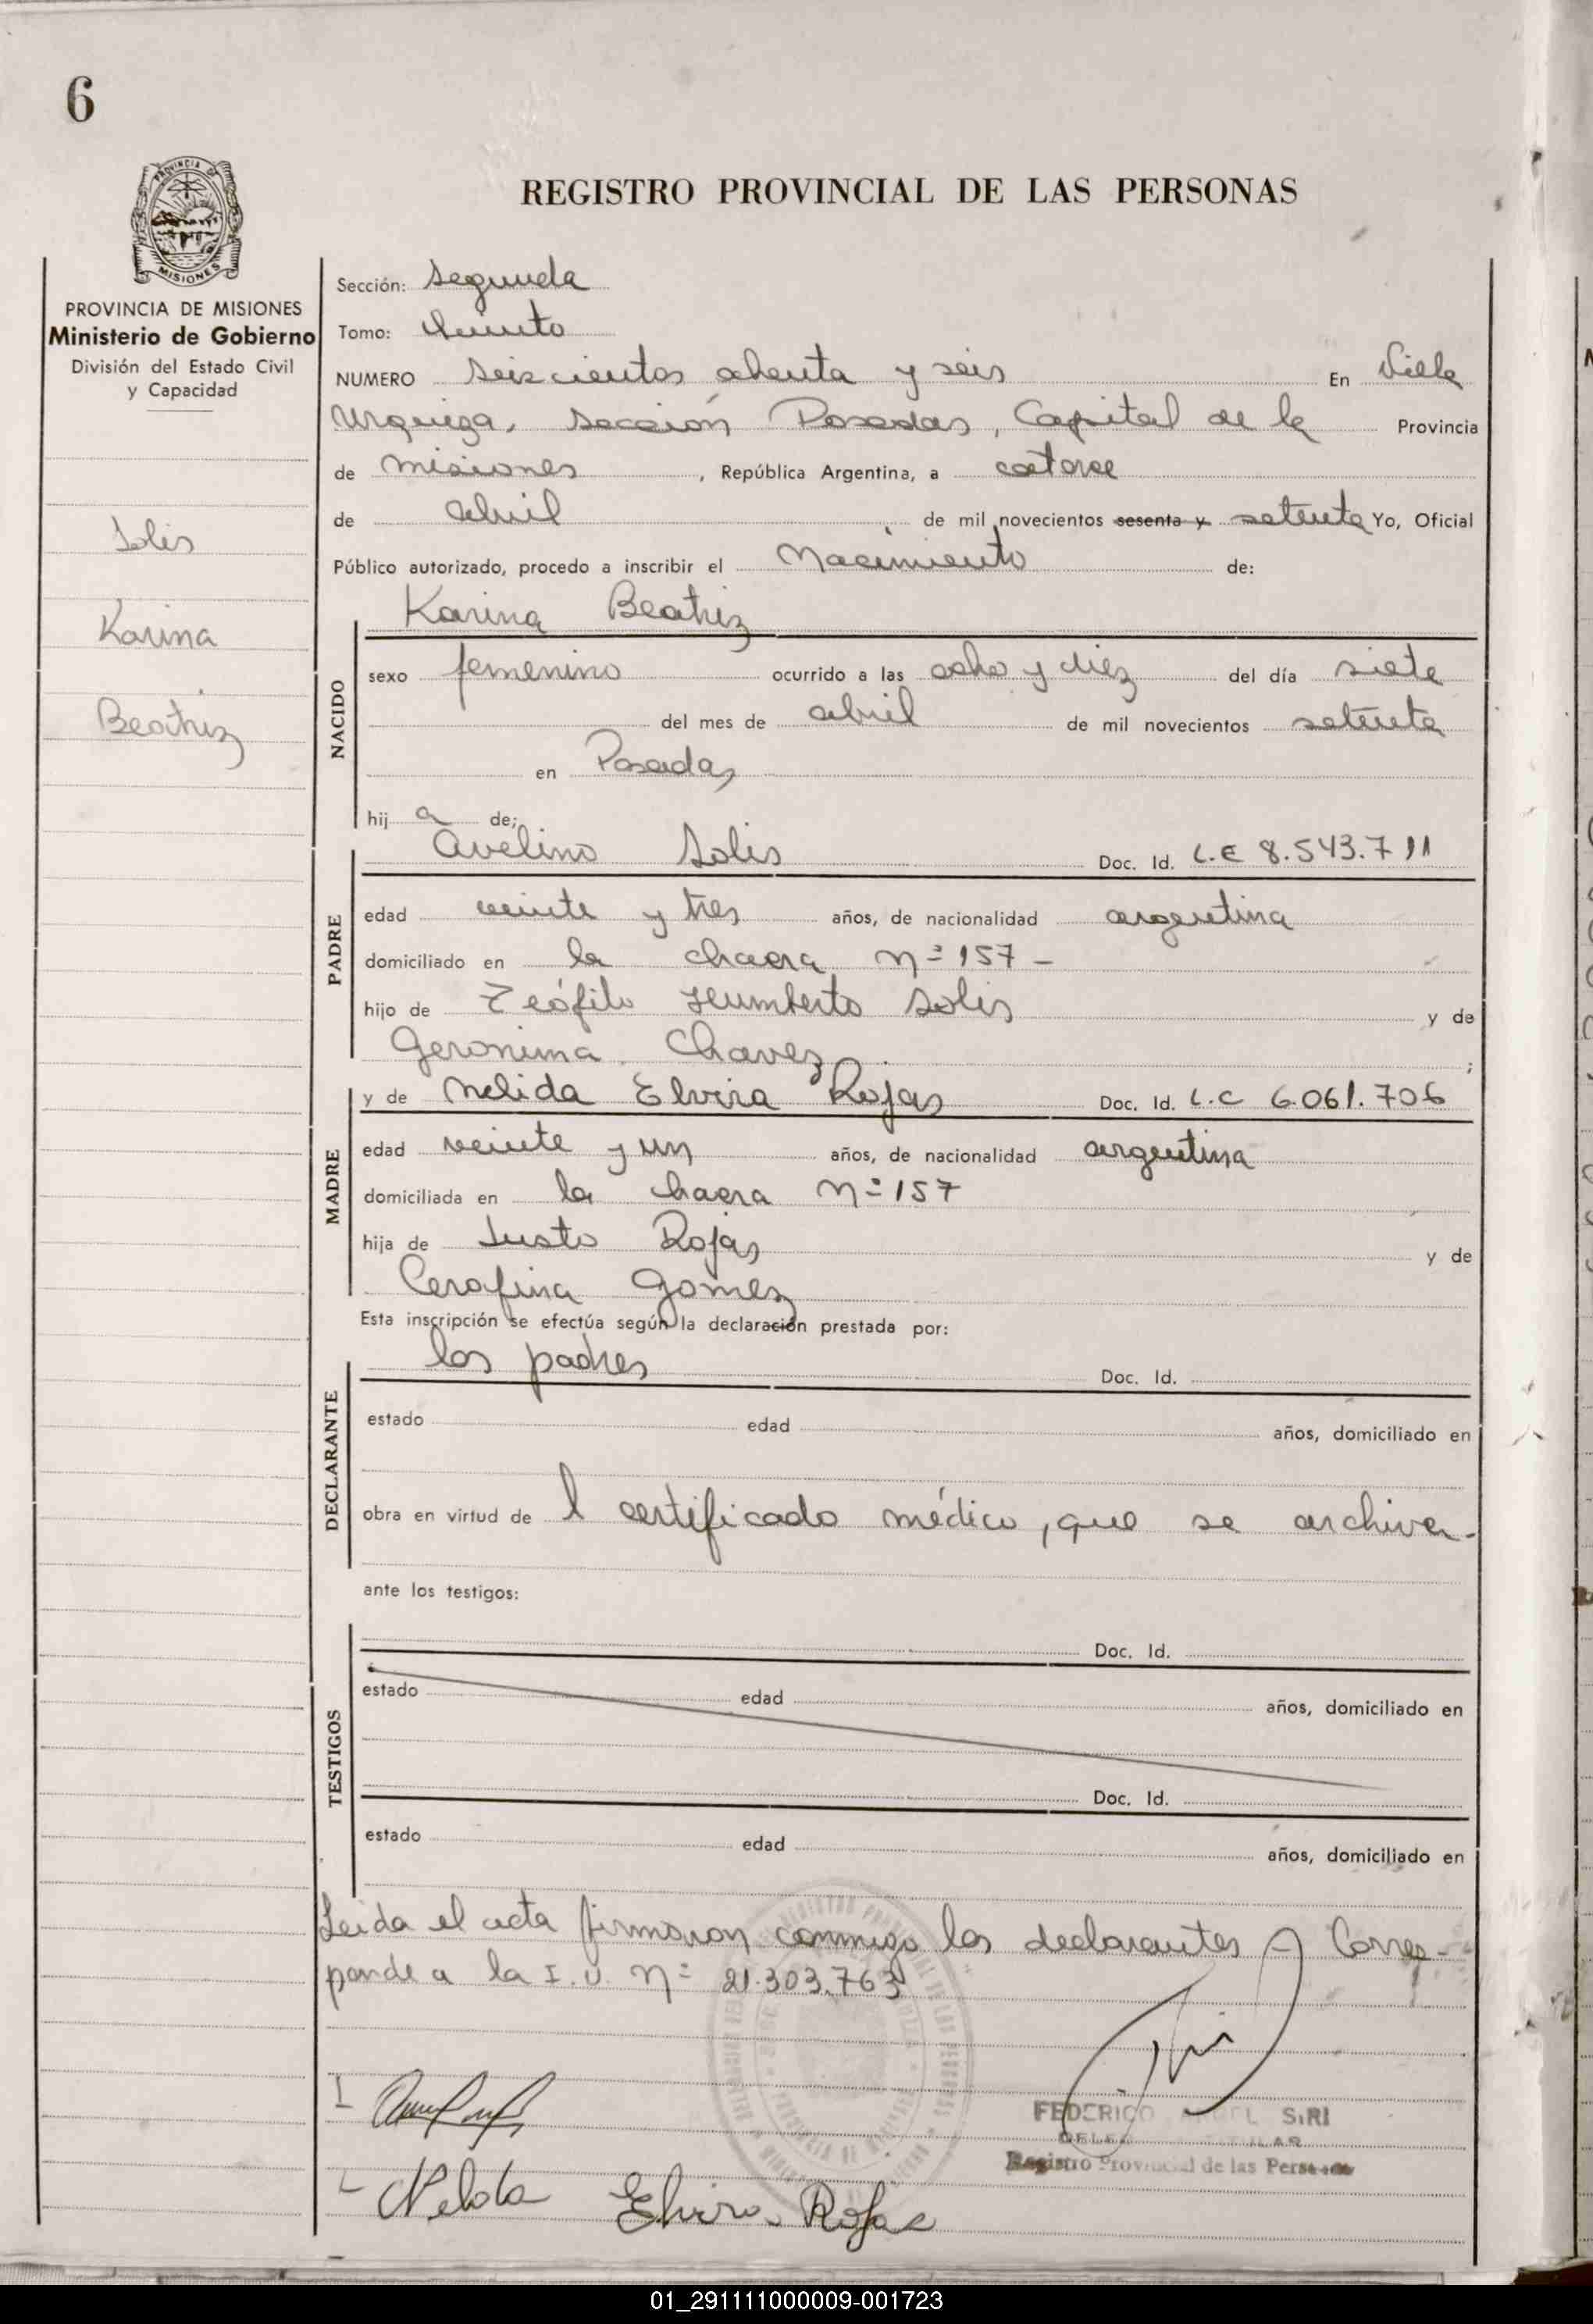 6
PROVINCIA DE MISIONES
REGISTRO PROVINCIAL DE LAS PERSONAS
PROVINCIA DE MISIONES
Ministerio de Gobierno
División del Estado Civil
y Capacidad
Solis
Karina
Beatriz
Sección: Segunda
Tomo: Quinto
NUMERO Seiscientos ochenta y seis En Villa
Urquiza, Sección Posadas, Capital de la Provincia
de Misiones, República Argentina, a catorce
de abril de mil novecientos sesenta y setenta Yo, Oficial
Público autorizado, procedo a inscribir el Nacimiento de:
Karina Beatriz
NACIDO
sexo femenino ocurrido a las ocho y diez del día siete
del mes de abril de mil novecientos setenta
en Posadas
hij a de;
Avelino Solis Doc. Id. L.E 8.543.711
PADRE
edad veinte y tres años, de nacionalidad argentina
domiciliado en la chacra n° 157 -
hijo de Teófilo Humberto Solis y de
Geronima Chavez;
y de Nelida Elvira Rojas Doc. Id. L.C 6.061.706
MADRE
edad veinte y un años, de nacionalidad argentina
domiciliada en la chacra n° 157
hija de Justo Rojas y de
Cerafina Gomez
Esta inscripción se efectúa según la declaración prestada por:
los padres Doc. Id.
DECLARANTE
estado edad años, domiciliado en
obra en virtud de l certificado médico, que se archiva.
ante los testigos:
Doc. Id.
TESTIGOS
estado edad años, domiciliado en
Doc. Id.
estado edad años, domiciliado en
Leida el acta firmaron conmigo los declarantes Corres-
ponde a la I.U. n° 21.303.763
FEDERICO SIRI
Registro Provincial de las Personas
Nelida Elvira Rojas
01_291111000009-001723